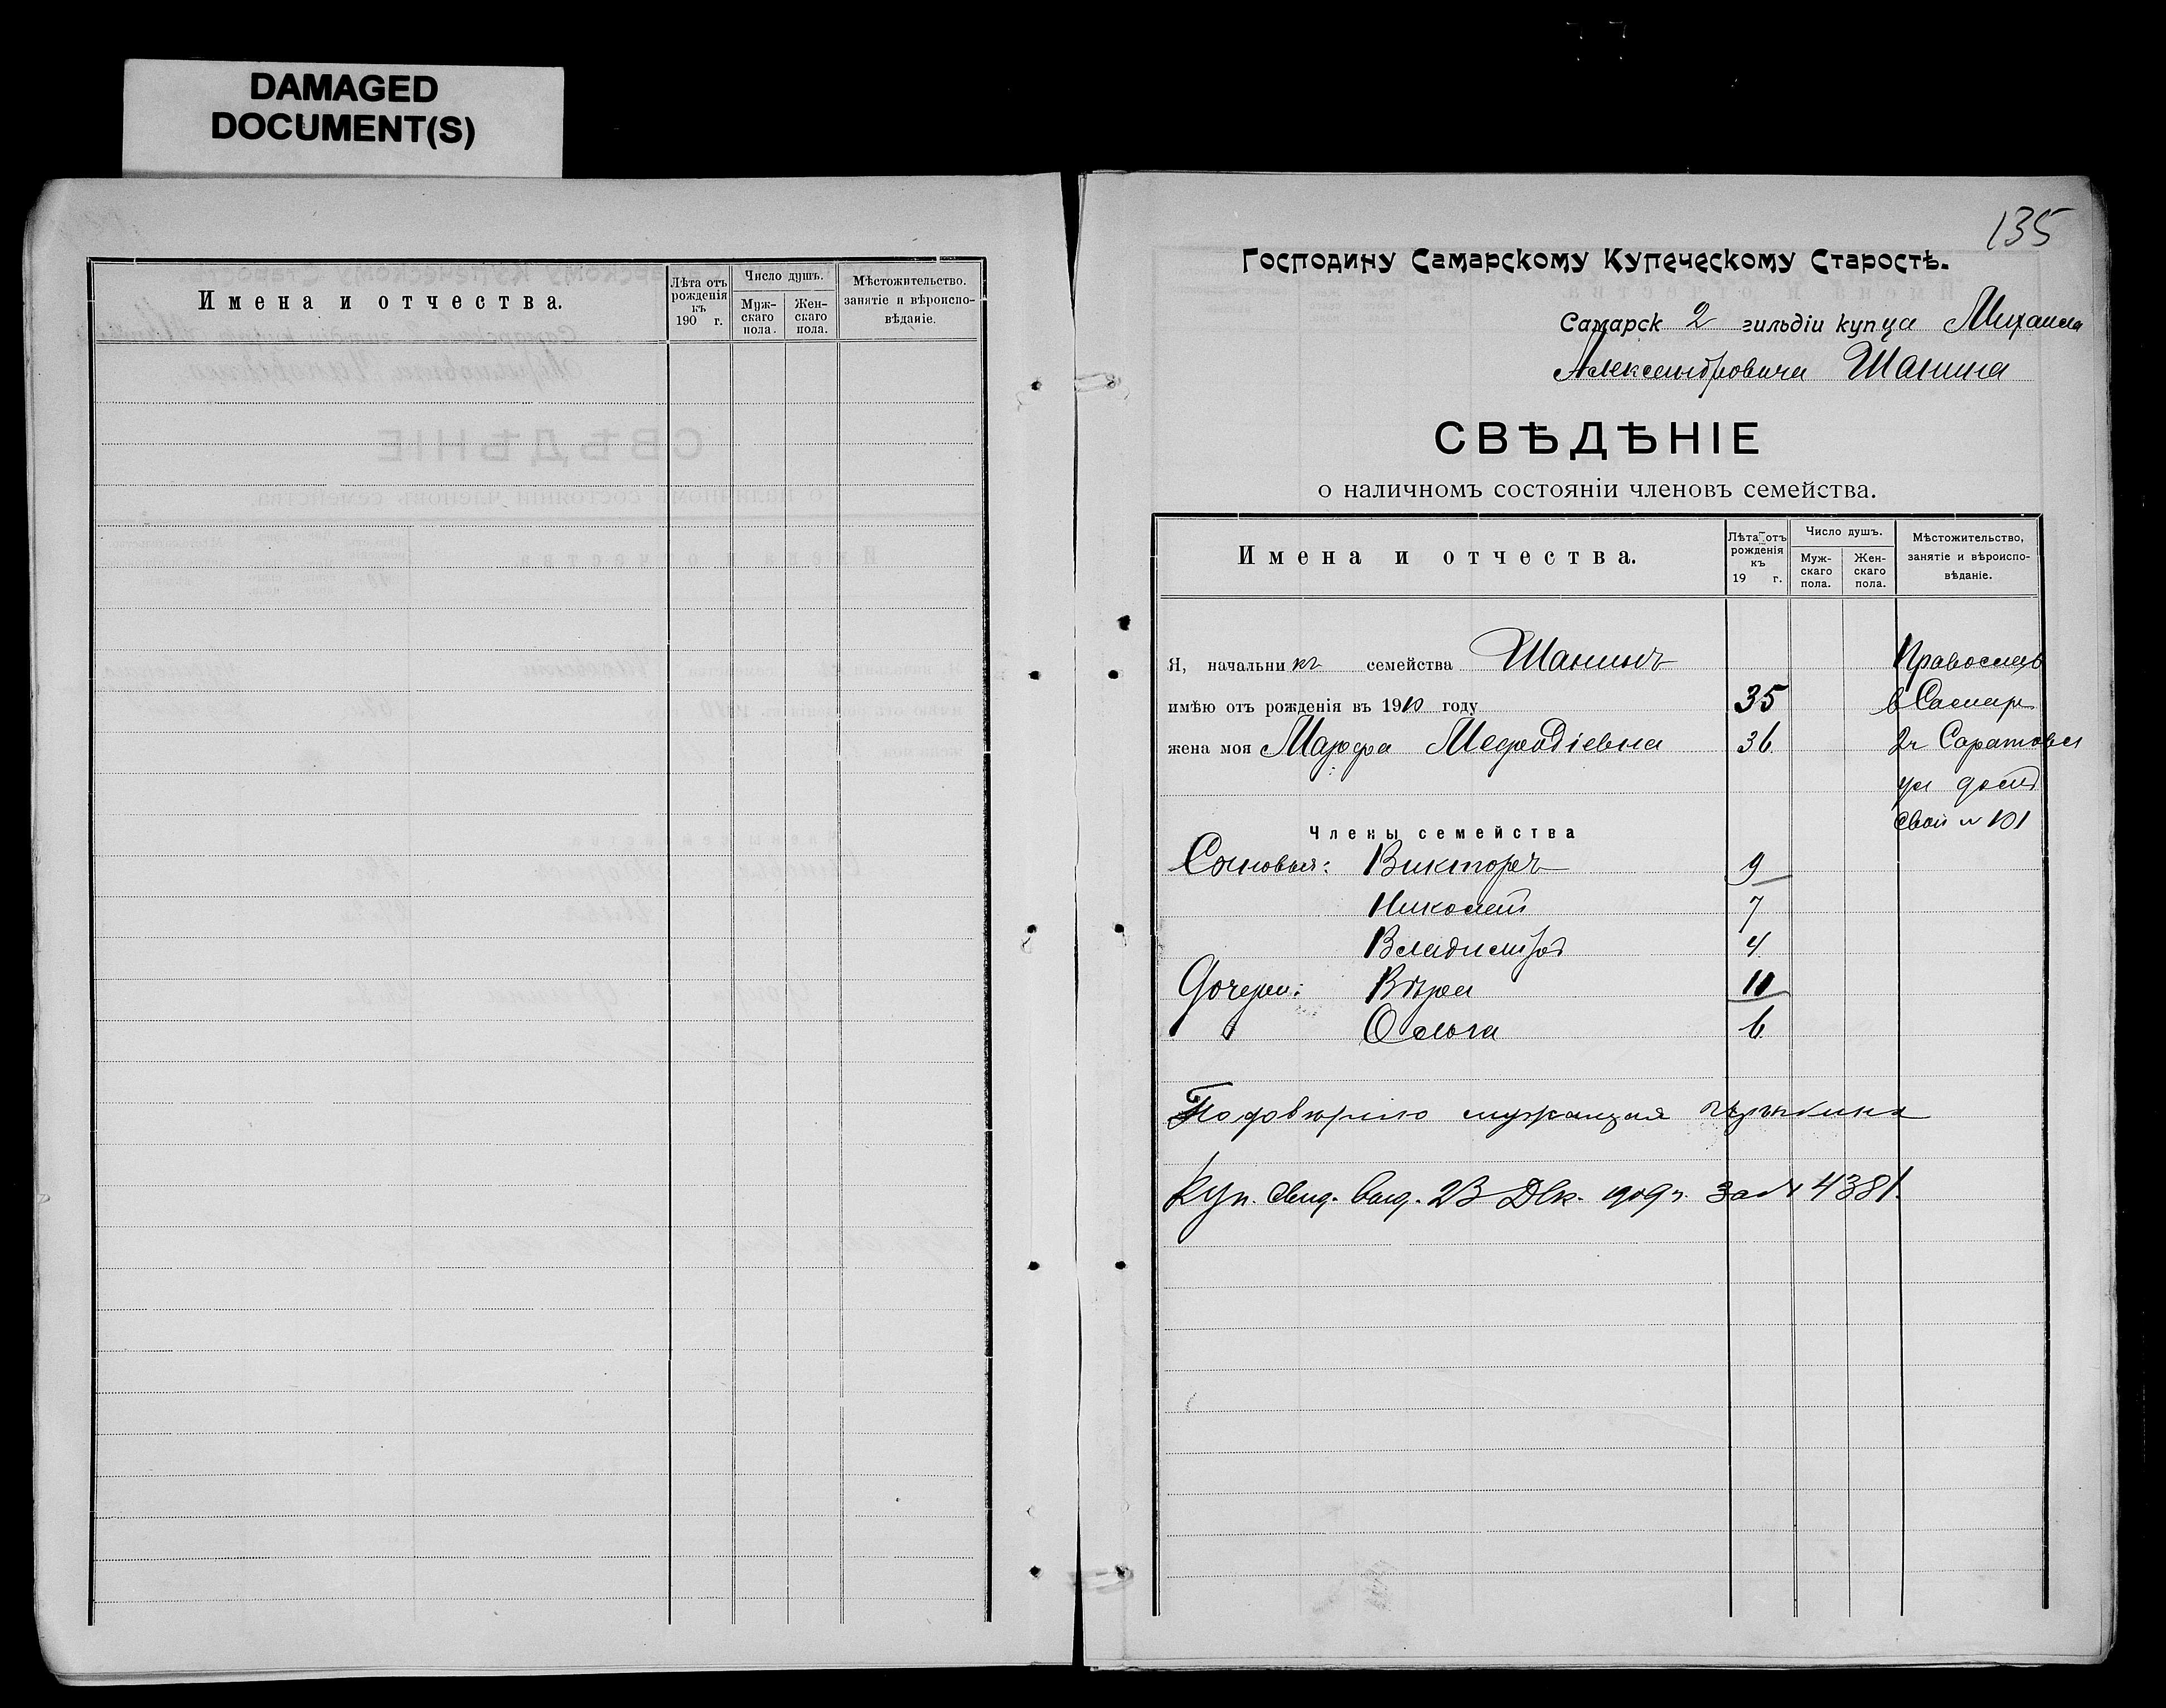 DAMAGED
DOCUMENT(S)
Имена и отчества.
Лѣта отъ рожденія къ 190 г.
Число душъ.
Муж-
скаго
пола.
Жен-
скаго
пола.
Мѣстожительство.
занятіе и вѣроиспо-
вѣданіе.
135
Господину Самарскому Купеческому Старостѣ.
Самарск 2 гильдіи купца Михаила
Александровича Шанина
СВѢДѢНІЕ
о наличномъ состояніи членовъ семейства.
Имена и отчества.
Лѣта отъ
рожденія
къ
19 г.
Число душъ.
Муж-
скаго
пола.
Жен-
скаго
пола.
Мѣстожительство,
занятіе и вѣроиспо-
вѣданіе.
Я, начальникъ семейства Шанинъ Православ
имѣю отъ рожденія въ 1910 году 35 в Самар
жена моя Марфа Мефодіевна 36 2ч Саратовск
ул домъ
свой № 101
Члены семейства
Сыновья: Викторъ 9
Николай 7
Владиміръ 4
Дочери: Вѣра 10
Ольга 6
По довѣрію
Куп. свид. выд. 23 Дек. 1909 г. за № 4381.